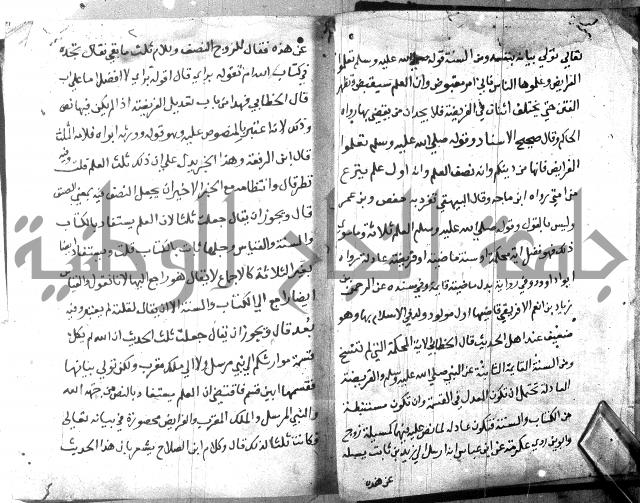 تعالى تولى بيانه بنفسه ومن السنة قوله صلى الله عليه وسلم تعلموا
الفرايض وعلموها الناس فاني امرء مقبوض وان العلم سيقبض وتظهر
الفتن حتى يختلف اثنان في الفريضة فلا يجدان من يقضي بها رواه
الحاكم وقال صحيح الاسناد وقوله صلى الله عليه وسلم تعلموا
الفرايض فانها من دينكم وانه نصف العلم وانه اول علم ينزع
من امتي رواه ابن ماجه وقال البيهقي تفرد به حفص بن عمر
وليس بالقوي وقوله صلى الله عليه وسلم العلم ثلاثة وما سوى
ذلك فهو فضل اية محكمة او سنة ماضية او فريضة عادلة رواه
ابو داود وفي رواية بدل ماضية قايمة وفي سنده عبد الرحمن بن
زياد بن انعم الافريقي قاضيها اول مولود ولد في الاسلام بها وهو
ضعيف عند اهل الحديث قال الخطابي الاية المحكمة التي لم تنسخ
ومن السنة القايمة الثابتة عن النبي صلى الله عليه وسلم والفريضة
العادلة تحتمل ان تكون العدل في القسمة وان تكون مستنبطة
من الكتاب والسنة فتكون عادلة لما نص عليه فيهما كمسيلة زوج
وابوين روى عكرمة عن ابن عباس انه ارسل الى زيد بن ثابت يسيله
عن هذه
عن هذه فقال للزوج النصف وللام ثلث ما بقي فقال تجده
في كتاب الله ام تقوله براي قال اقوله براي لا افضل اما على اب
قال الخطابي فهذا من باب تعديل الفريضة اذ لم يكن فيها نص
وذلك لانه اعتبر بالمنصوص عليه وهو قوله وورثه ابواه فلامه الثلث
قال ابن الرفعة وهذا الخبر يدل على ان ذلك ثلث العلم قلت وفيه
نظر قال وانتظامه مع الخبر الاخير ان يجعل النصف فيه بمعنى الصنف
قال ويجوز ان يقال جعلت ثلثا لان العلم يستفاد بالكتاب
والسنة والقياس وجلها ثابت بالكتاب قلت ويستفاد ايضا
بغير الثلاثة كالاجماع لا يقال هو راجع اليها لانا نقول والقياس
ايضا راجع الى الكتاب والسنة الا ان يقال لقلته لم يعتبره وفيه
بعد قال ويجوز ان يقال جعلت ثلث الحديث ان الله لم يكل
قسمة مواريثكم الى نبي مرسل ولا الى ملك مقرب ولكن تولى بيانها
فقسمها ابين قسم فاقتضى ان العلم يستفاد بالنص من جهة الله
والنبي المرسل والملك المقرب والفرايض محصورة في بيانه تعالى
فكانت ثلثا لذلك قال وكلام ابن الصلاح يشعر بان هذا الحديث
جامعة النجاح الوطنية